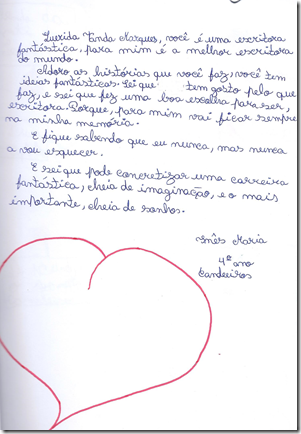 Querida Vanda Marques, você é uma escritora
fantástica, para mim é a melhor escritora
do mundo.
Adoro as histórias que você faz, você tem
ideias fantásticas. Sei que tem gosto pelo que
faz, e sei que fez uma boa escolha para ser,
escritora. Porque, para mim vai ficar sempre
na minha memória.
E fique sabendo que eu nunca, mas nunca
a vou esquecer.
E sei que pode concretizar uma carreira
fantástica, cheia de imaginação, e o mais
importante, cheia de sonhos.
Inês Maria
4º ano
Candeeiros